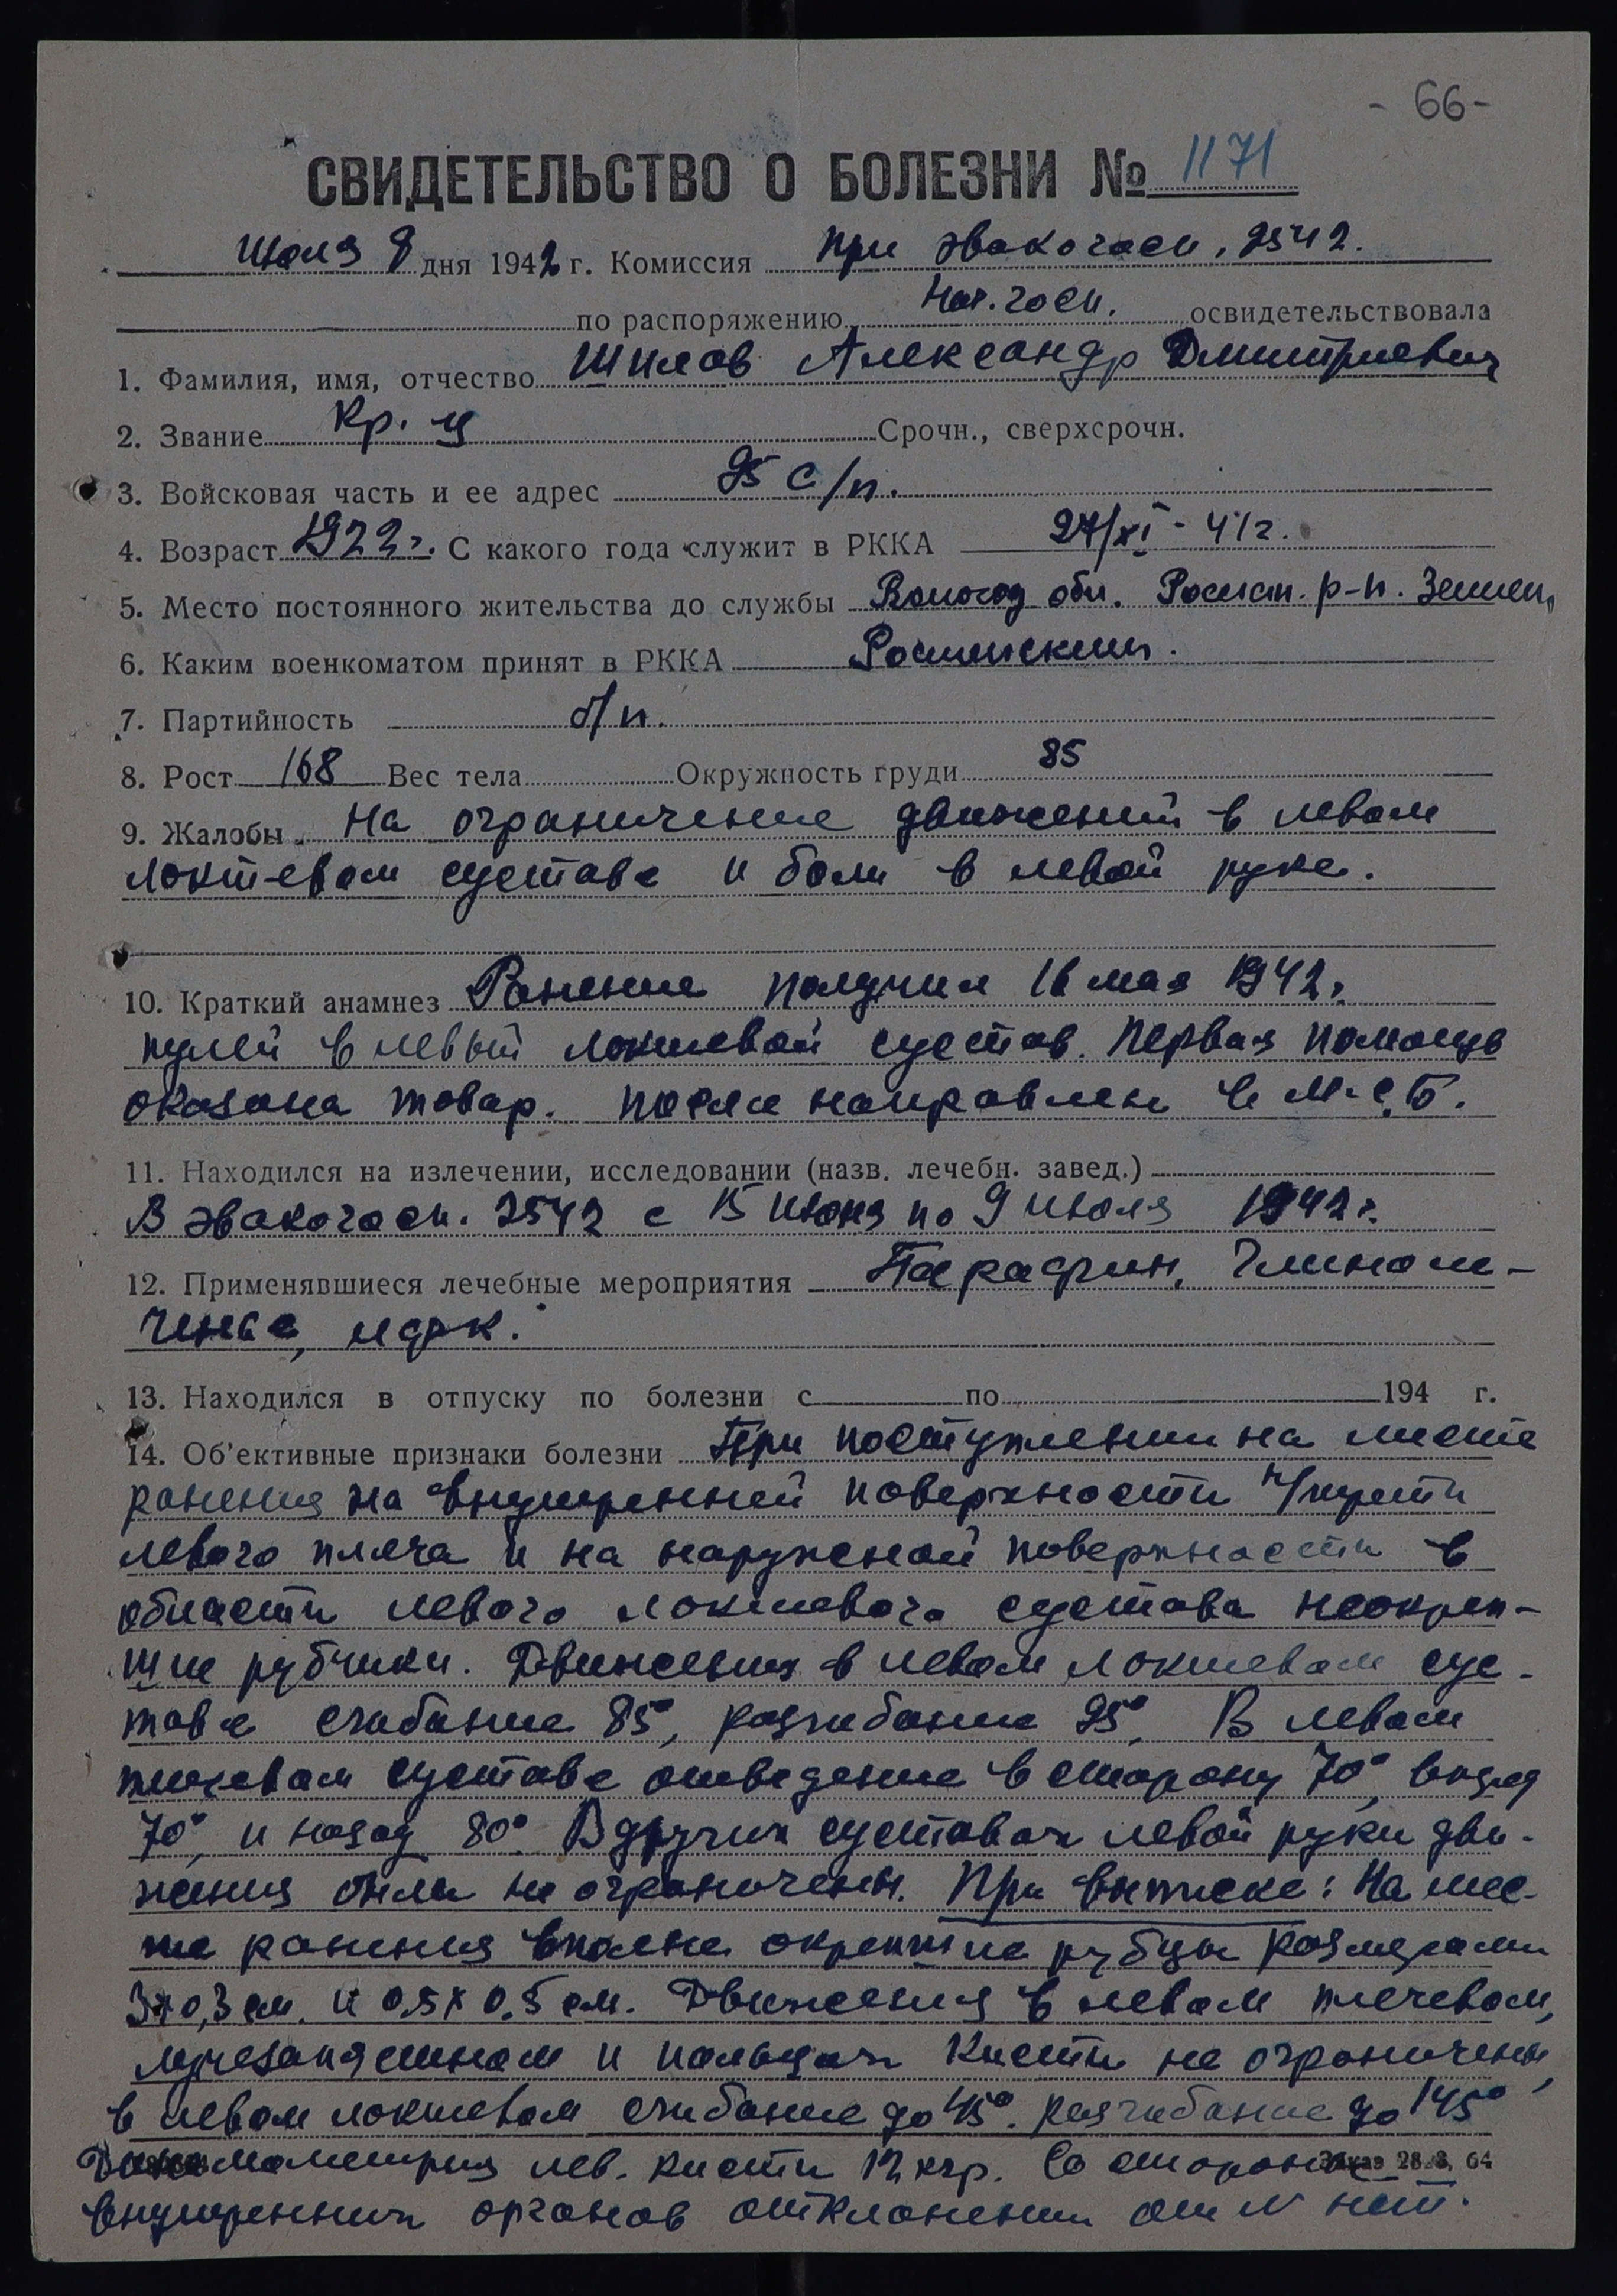 - 66-
СВИДЕТЕЛЬСТВО О БОЛЕЗНИ № 1171
Июля 9 дня 1942 г. Комиссия при эвакогосп. 2542.
по распоряжению Нач. госп. освидетельствовала
1. Фамилия, имя, отчество Шилов Александр Дмитриевич
2. Звание Кр. ц Срочн., сверхсрочн.
3. Войсковая часть и ее адрес 95 с/п.
4. Возраст 1922 г. С какого года служит в РККА 27/XI - 41 г.
5. Место постоянного жительства до службы Вологод обл. р-н.
6. Каким военкоматом принят в РККА
7. Партийность б/п.
8. Рост 168 Вес тела Окружность груди 85
9. Жалобы На ограничение движений в левом
локтевом суставе и боли в левой руке.
10. Краткий анамнез Ранение получил 16 мая 1942 г.
пулей в левый локтевой сустав. Первая помощь
оказана товар. после направлен в М.С.Б.
11. Находился на излечении, исследовании (назв. лечебн. завед.)
В эвакогосп. 2542 с 15 июня по 9 июля 1942 г.
12. Применявшиеся лечебные мероприятия Парафин,
лфк.
13. Находился в отпуску по болезни с по 194 г.
14. Об'ективные признаки болезни При поступлении на месте
ранения на внутренней поверхности н/трети
левого плеча и на наружной поверхности в
области левого локтевого сустава неокреп-
шие рубчики. Движения в левом локтевом сус-
таве сгибание 85°, разгибание 95°. В левом
плечевом суставе отведение в сторону 70°, вперед
70°, и назад 80°. В других суставах левой руки дви-
жения были не ограничены. При выписке: На мес-
те ранения вполне окрепшие рубцы размерами
3х0,3 см. и 0,5х0,5 см. Движения в левом плечевом,
лучезапястном и пальцах кисти не ограничены,
в левом локтевом сгибание до 45°. разгибание до 145°
Динамометрия лев. кисти 12 кгр. Со стороны Заказ 28.8, 64
внутренних органов отклонений от N нет.